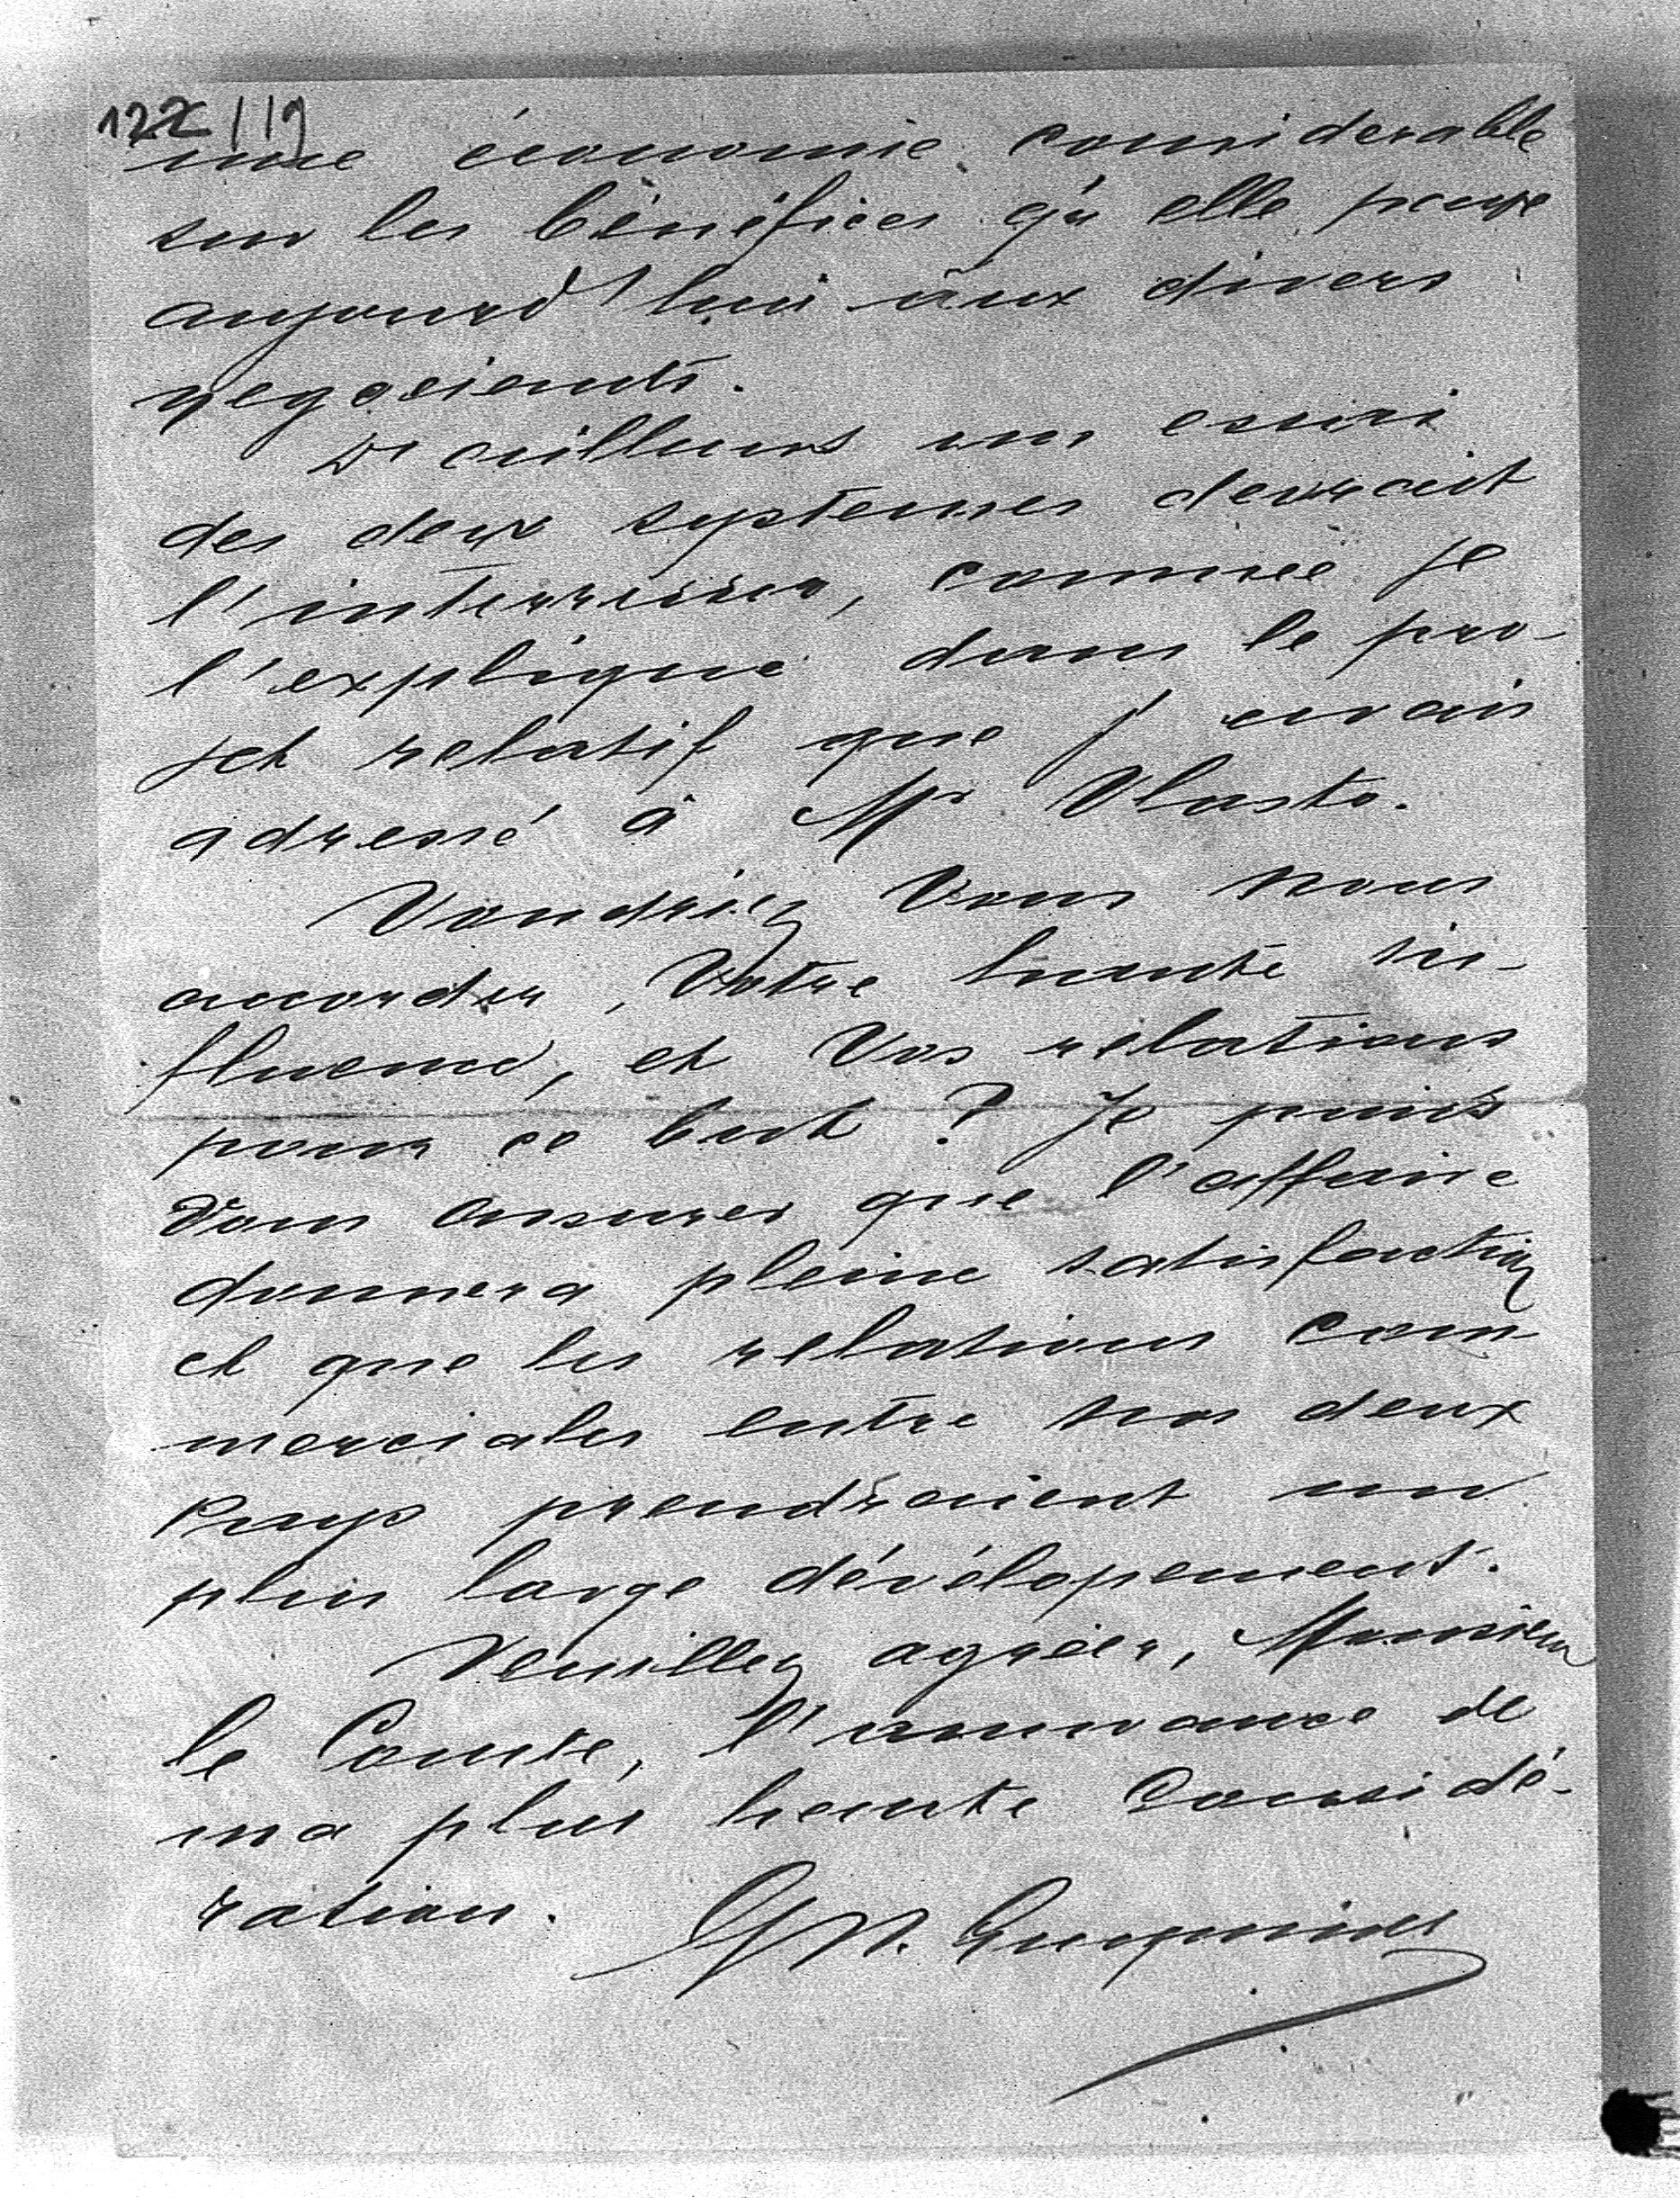 122/19
une économie considerable
sur les bénéfices qu'elle paye
aujourd'hui aux divers
negocients.
D'ailleurs un essai
des deux systemes devrait
l'interresser, comme je
l'explique dans le pro-
jet relatif que j'avais
adressé à Mr Vlasto.
Voudriez Vous nous
accorder, Votre haute in-
fluence, et Vos relations
pour ce but ? Je puis
Vous assurer que l'affaire
donnera pleine satisfaction
et que les relations com-
merciales entre nos deux
Pays prendraient un
plus large dévélopement.
Veuillez agréer, Monsieur
le Comte, l'assurance de
ma plus haute Considé-
ration.